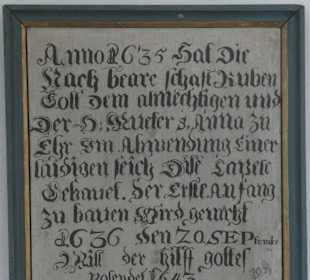 Anno 1635 Hat Die
Nach beare schafft Ruben
Gott dem almechtigen und
Der H: Mueter S. Anna zu
Ehr Um Abwendung Einer
leidigen seich Dise Capele
Gebauet. Der Erste Anfang
zu bauen Wird gemacht
1636 den 20 SEP
Will der hilft gottes
1643